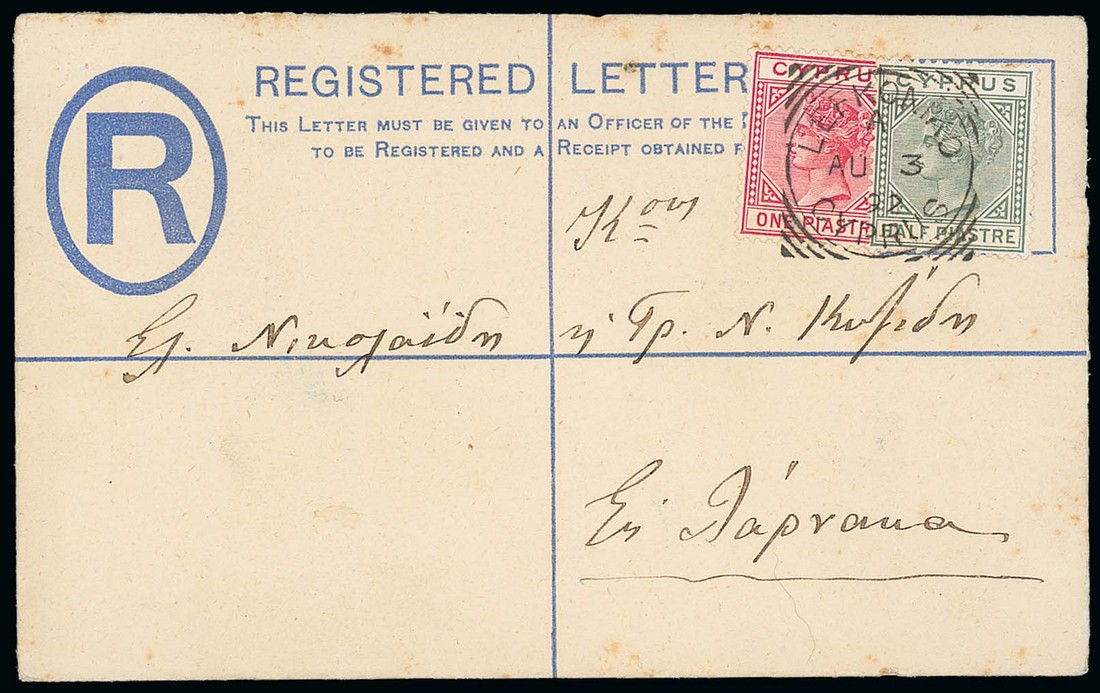 R
REGISTERED LETTER
THIS LETTER MUST BE GIVEN TO AN OFFICER OF THE
TO BE REGISTERED AND A RECEIPT OBTAINED F
CYPRUS
CYPRUS
ONE PIASTRE
HALF PIASTRE
AU 3
97
CYPRUS
Κους
Ελ. Νικολαΐδη ἢ Γρ. Ν. Κυζίδη
Εἰς Λάρνακα